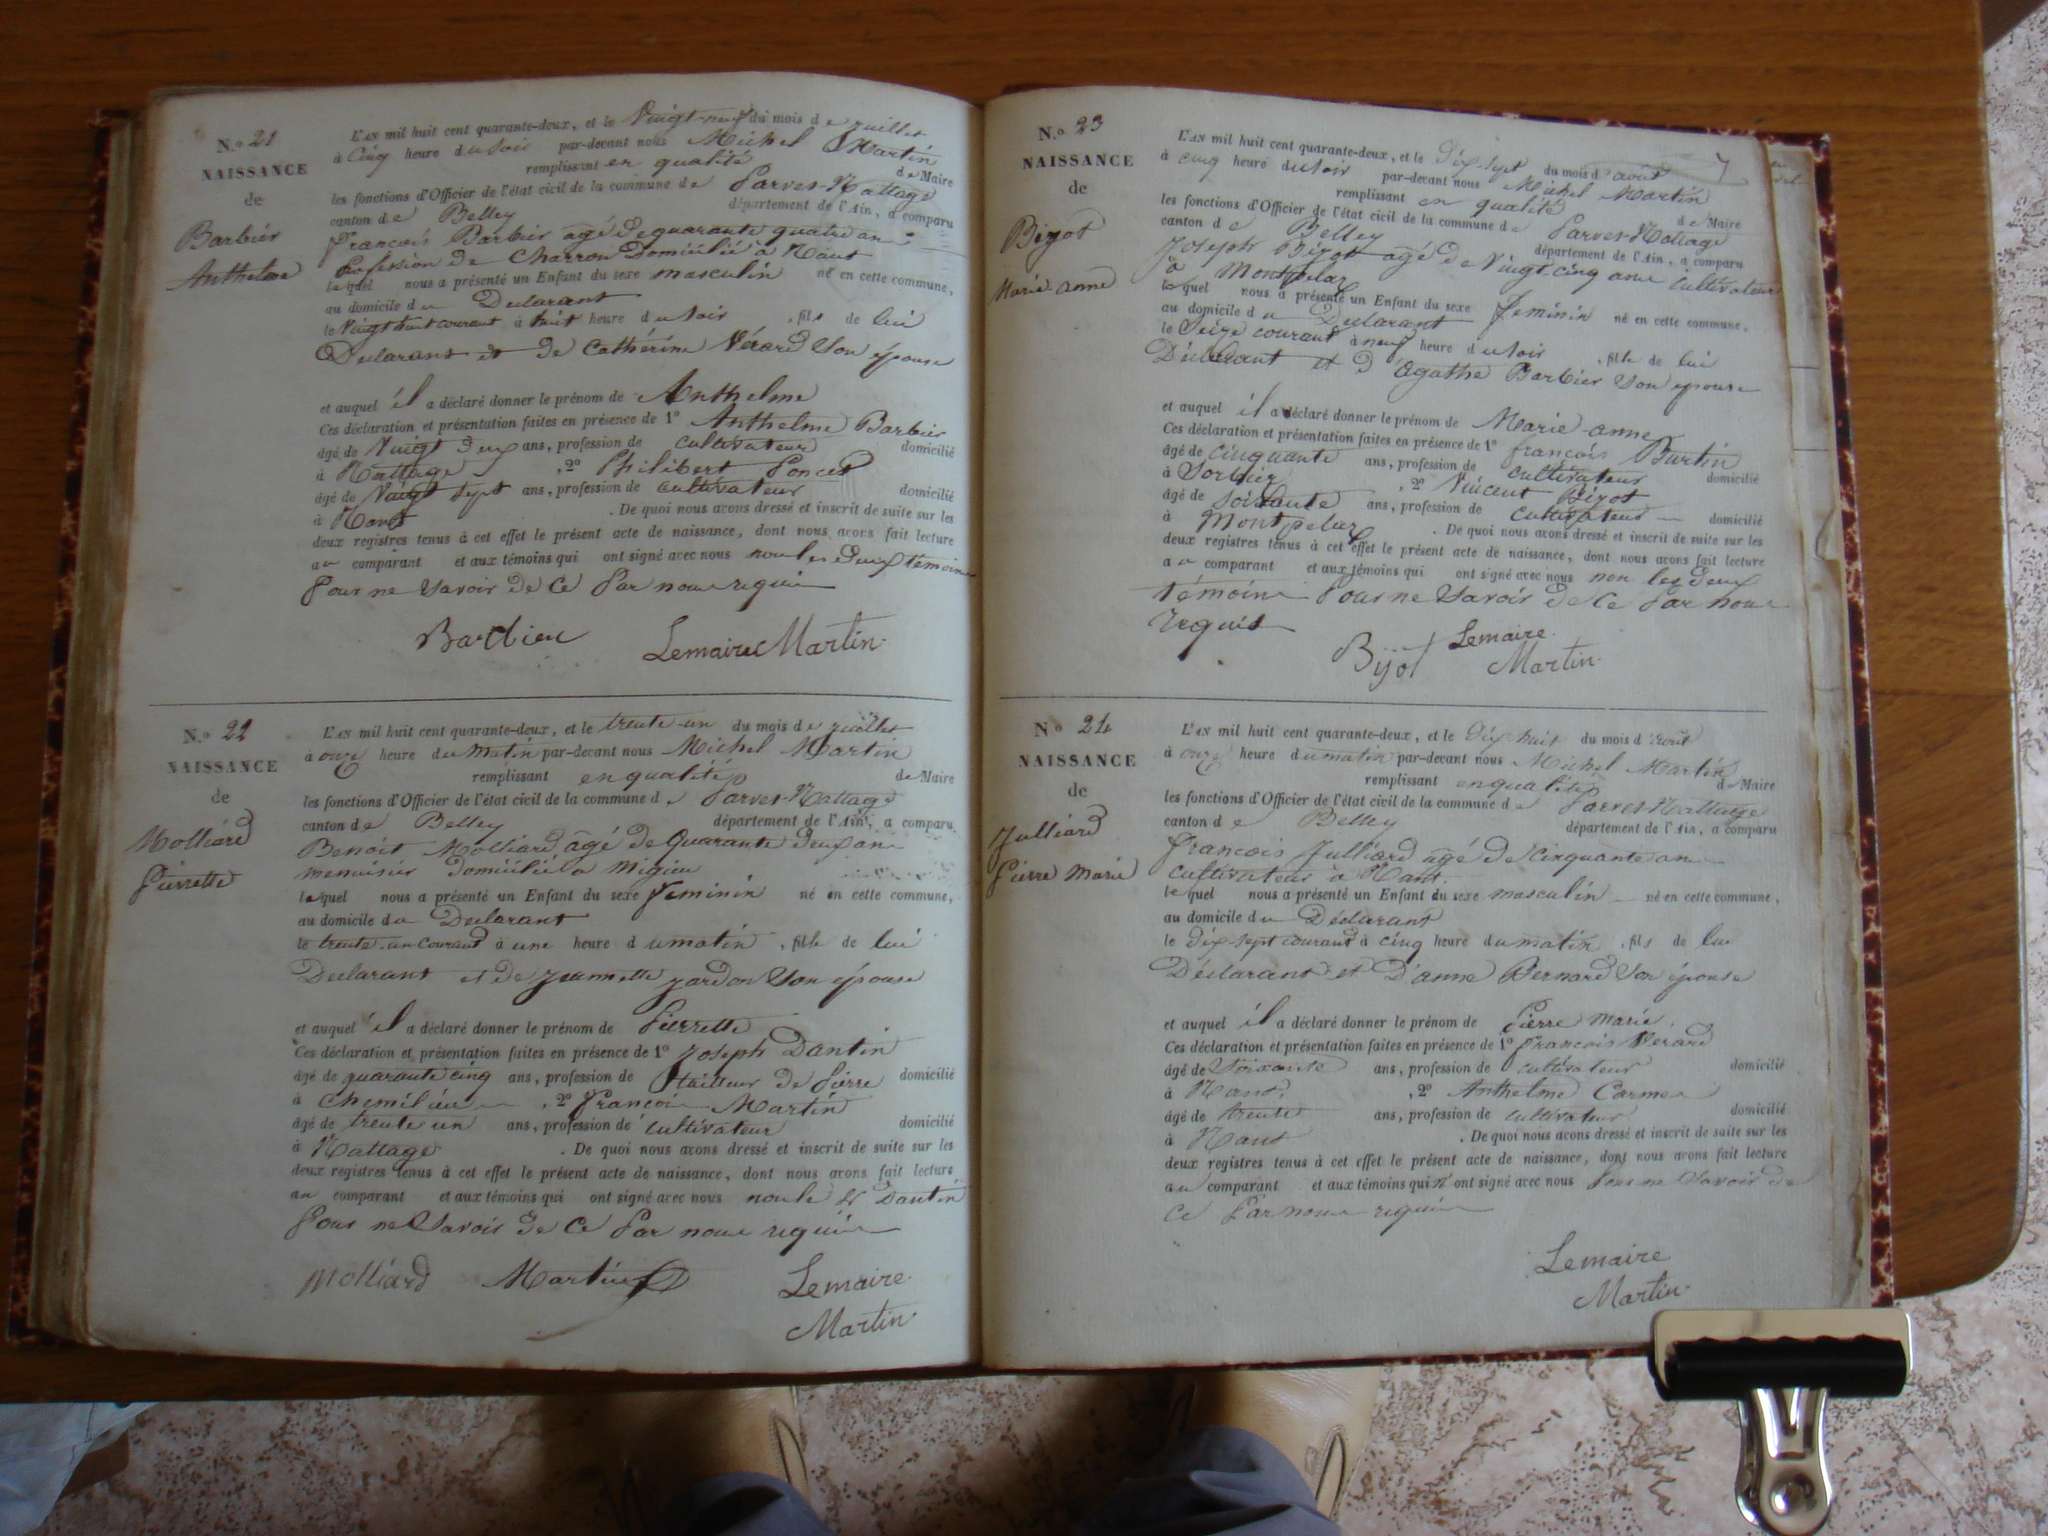 N.o 21
NAISSANCE
de
Barbier
Anthelme
L'AN mil huit cent quarante-deux, et le Vingt-neuf du mois de juillet
à Cinq heure du soir par-devant nous Michel Martin
remplissant en qualité de Maire
les fonctions d'Officier de l'état civil de la commune de Parves-Nattage
canton de Belley département de l'Ain, a comparu
françois Barbier agé de quarante quatre ans
Profession de Charron Domicilié à Nant
lequel nous a présenté un Enfant du sexe masculin né en cette commune,
au domicile du Declarant
le Vingt huit courant à huit heure du soir , fils de lui
Declarant et de Catherine Vérard Son épouse
et auquel il a déclaré donner le prénom de Anthelme
Ces déclaration et présentation faites en présence de 1º Anthelme Barbier
âgé de Vingt deux ans, profession de cultivateur domicilié
à Nattage , 2º Philibert Poncet
âgé de Vingt sept ans, profession de cultivateur domicilié
à Nant . De quoi nous avons dressé et inscrit de suite sur les
deux registres tenus à cet effet le présent acte de naissance, dont nous avons fait lecture
au comparant et aux témoins qui ont signé avec nous non les deux témoins
Pour ne Savoir de Ce Par nous requis
Barbier Lemaire Martin
N.o 22
NAISSANCE
de
Molliard
Pierrette
L'AN mil huit cent quarante-deux, et le trente-un du mois de juillet
à onze heure du matin par-devant nous Michel Martin
remplissant en qualité de Maire
les fonctions d'Officier de l'état civil de la commune de Parves-Nattage
canton de Belley département de l'Ain, a comparu
Benoit Molliard âgé de Quarante deux ans
menuisier domicilié a Migieu
lequel nous a présenté un Enfant du sexe Feminin né en cette commune,
au domicile du Declarant
le trente-un courant à une heure du matin , fille de lui
Declarant et de Jeannette Jardon Son épouse
et auquel il a déclaré donner le prénom de Pierrette
Ces déclaration et présentation faites en présence de 1º Joseph Dantin
âgé de quarante cinq ans, profession de tailleur de Pierre domicilié
à Chemilieu , 2º françois Martin
âgé de trente un ans, profession de cultivateur domicilié
à Nattage . De quoi nous avons dressé et inscrit de suite sur les
deux registres tenus à cet effet le présent acte de naissance, dont nous avons fait lecture
au comparant et aux témoins qui ont signé avec nous non le Sr Dantin
Pour ne Savoir de Ce Par nous requis
Molliard Martin Lemaire
Martin
7
N.o 23
NAISSANCE
de
Bizot
Marie anne
L'AN mil huit cent quarante-deux, et le Dix-sept du mois d'août
à cinq heure du soir par-devant nous Michel Martin
remplissant en qualité de Maire
les fonctions d'Officier de l'état civil de la commune de Parves-Nattage
canton de Belley département de l'Ain, a comparu
Joseph Bizot agé de Vingt cinq ans cultivateur
à Montpelaz
lequel nous a présenté un Enfant du sexe feminin né en cette commune,
au domicile du Declarant
le Seize courant à neuf heure du soir , fille de lui
Déclarant et d'agathe Barbier Son épouse
et auquel il a déclaré donner le prénom de Marie-anne
Ces déclaration et présentation faites en présence de 1º françois Burtin
âgé de cinquante ans, profession de cultivateur domicilié
à Sorbier , 2º Vincent Bizot
âgé de soixante ans, profession de cultivateur domicilié
à Montpelaz . De quoi nous avons dressé et inscrit de suite sur les
deux registres tenus à cet effet le présent acte de naissance, dont nous avons fait lecture
au comparant et aux témoins qui ont signé avec nous non les deux
témoins Pour ne Savoir de Ce Par nous
requis
Bijot Lemaire
Martin
No 24
NAISSANCE
de
Julliard
Pierre Marie
L'AN mil huit cent quarante-deux, et le Dix huit du mois d'août
à onze heure du matin par-devant nous Michel Martin
remplissant en qualité de Maire
les fonctions d'Officier de l'état civil de la commune de Parves-Nattage
canton de Belley département de l'Ain, a comparu
françois Julliard agé de cinquante ans
cultivateur à Nant.
lequel nous a présenté un Enfant du sexe masculin né en cette commune,
au domicile du Déclarant
le Dix sept courant à cinq heure du matin , fils de lui
Déclarant et D'anne Bernard Son épouse
et auquel il a déclaré donner le prénom de Pierre Marie.
Ces déclaration et présentation faites en présence de 1º françois Verard
âgé de Soixante ans, profession de cultivateur domicilié
à Nant. , 2º Anthelme Carme
âgé de trente ans, profession de cultivateur domicilié
à Nant . De quoi nous avons dressé et inscrit de suite sur les
deux registres tenus à cet effet le présent acte de naissance, dont nous avons fait lecture
au comparant et aux témoins qui n'ont signé avec nous Pour ne Savoir de
Ce Par nous requis
Lemaire
Martin